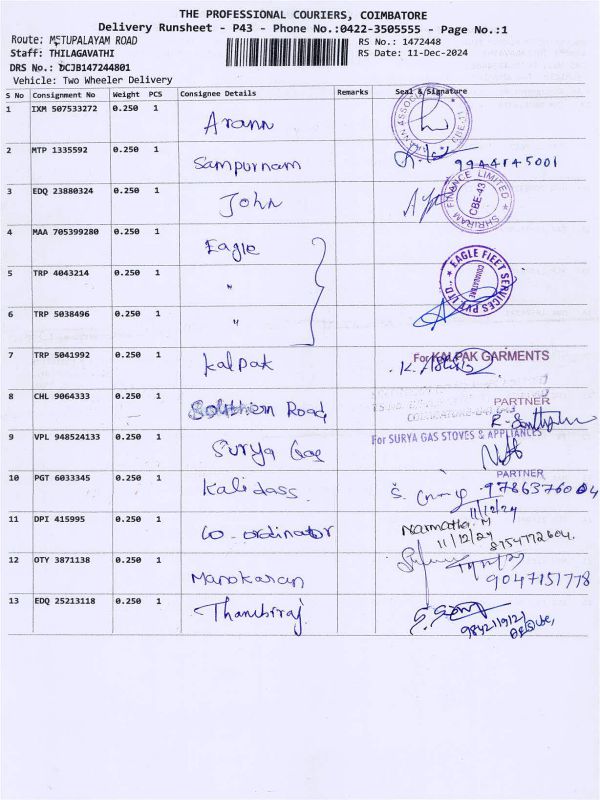 THE PROFESSIONAL COURIERS, COIMBATORE
Delivery Runsheet - P43 - Phone No.:0422-3505555 - Page No.:1
Route: METUPALAYAM ROAD
RS No.: 1472448
Staff: THILAGAVATHI
RS Date: 11-Dec-2024
DRS No.: DCJB147244801
Vehicle: Two Wheeler Delivery
S No Consignment No Weight PCS Consignee Details Remarks Seal & Signature
1 IXM 507533272 0.250 1 Arann
2 MTP 1335592 0.250 1 Sampurnam 9944145001
3 EDQ 23880324 0.250 1 John SHRIRAM FINANCE LIMITED CBE-43
4 MAA 705399280 0.250 1 Eagle
5 TRP 4043214 0.250 1 " EAGLE FLEET SERVICES PVT LTD. COIMBATORE
6 TRP 5038496 0.250 1 "
7 TRP 5041992 0.250 1 Kalpak For KALPAK GARMENTS
8 CHL 9064333 0.250 1 Southern Road PARTNER
9 VPL 948524133 0.250 1 Surya Gas For SURYA GAS STOVES & APPLIANCES
PARTNER
10 PGT 6033345 0.250 1 Kalidass 9786376004
11/12/24
11 DPI 415995 0.250 1 Co-ordinator Narmatha. M
11/12/24 8754772604
12 OTY 3871138 0.250 1 Manokaran
9047151778
13 EDQ 25213118 0.250 1 Thambiraj